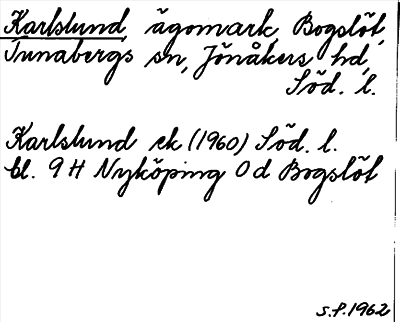 Karlslund, ägomark, Bogslöt,
Tunabergs sn, Jönåkers hd,
Söd. l.
Karlslund ek (1960) Söd. l.
bl. 9 H Nyköping 0 d Bogslöt
s.f. 1962